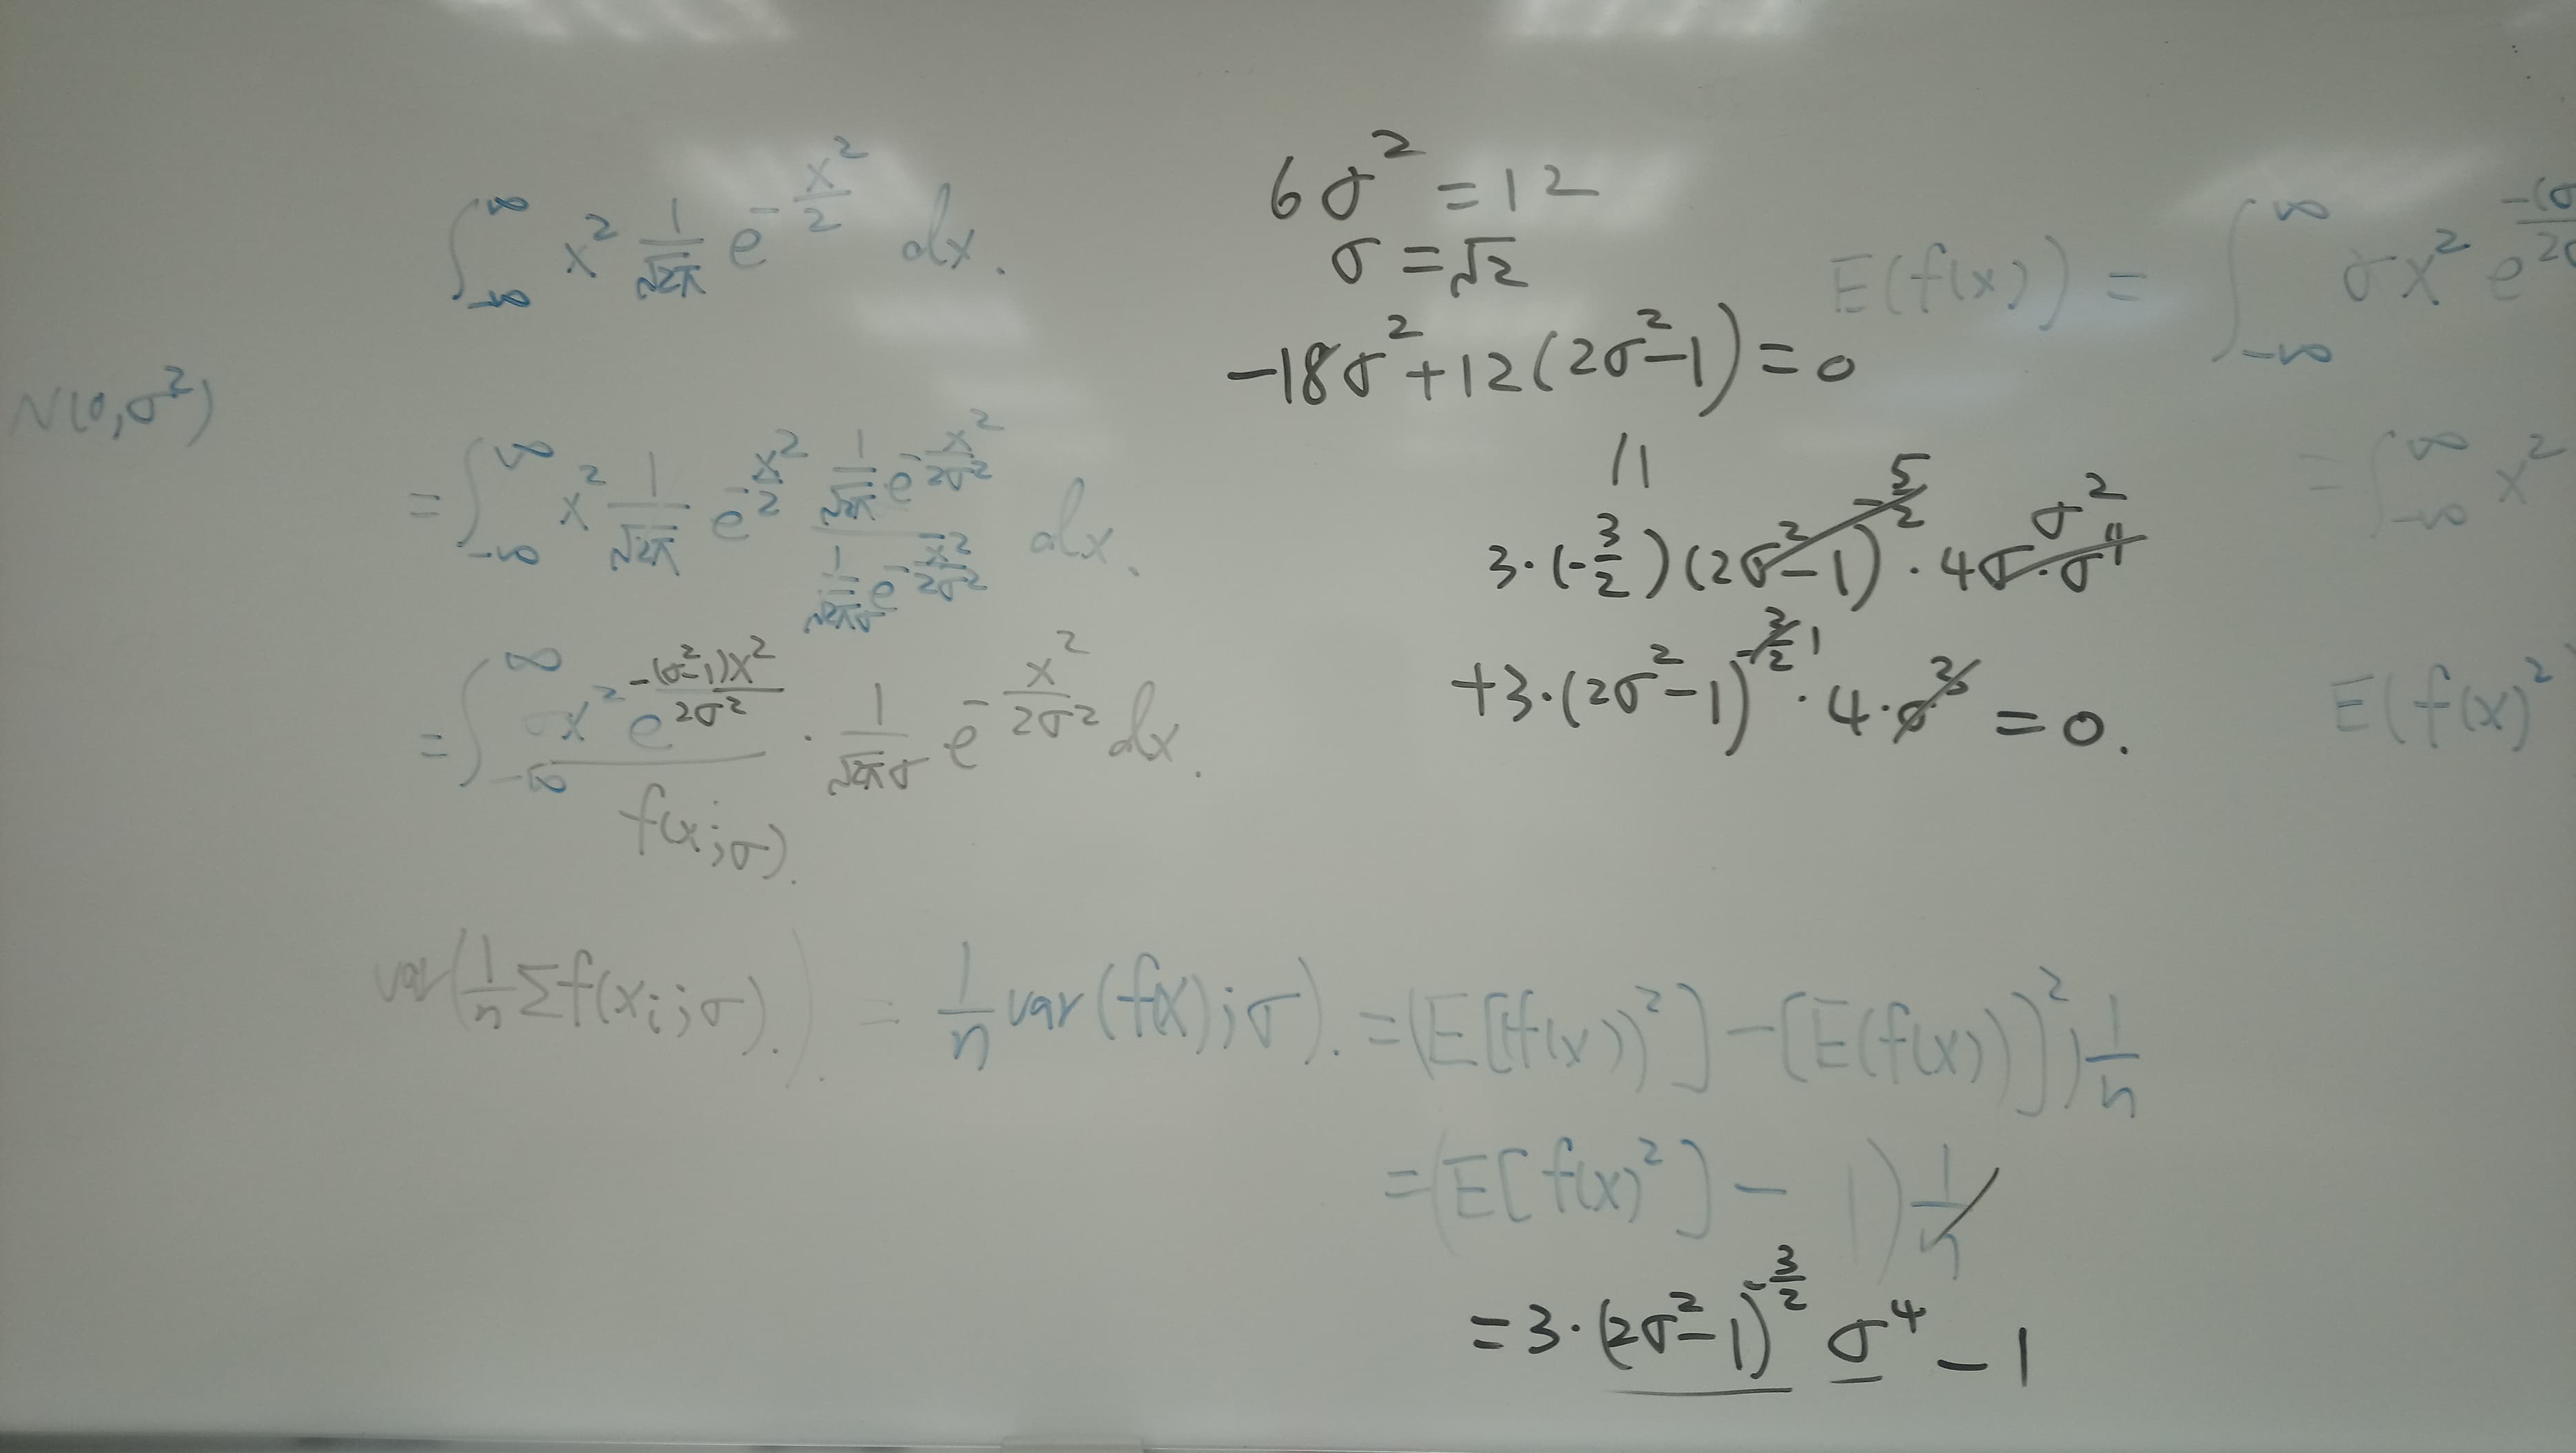 ∫_{-∞}^{∞} x² 1/√(2π) e^{-x²/2} dx.
N(0,σ²)
= ∫_{-∞}^{∞} x² 1/√(2π) e^{-x²/2} (1/√(2π) e^{-x²/2σ²})/(1/(√(2π)σ) e^{-x²/2σ²}) dx.
= ∫_{-∞}^{∞} σx² e^{-(σ²-1)x²/2σ²} · 1/(√(2π)σ) e^{-x²/2σ²} dx.
f(x;σ).
6σ² = 12
σ = √2
-18σ² + 12(2σ²-1) = 0
||
3·(-3/2)(2σ²-1)^{-5/2} · 4σ·σ⁴ σ²
+3·(2σ²-1)^{-3/2} 1 · 4·σ³ = 0.
E(f(x)) = ∫_{-∞}^{∞} σx² e^{-(σ/2σ}
= ∫_{-∞}^{∞} x²
E(f(x)²
var(1/n Σf(x_i;σ).). = 1/n var(f(x);σ). = (E[(f(x))²] - [E(f(x))]²) 1/n
= (E[f(x)²] - 1) 1/n
= 3·(2σ²-1)^{-3/2} σ⁴ - 1